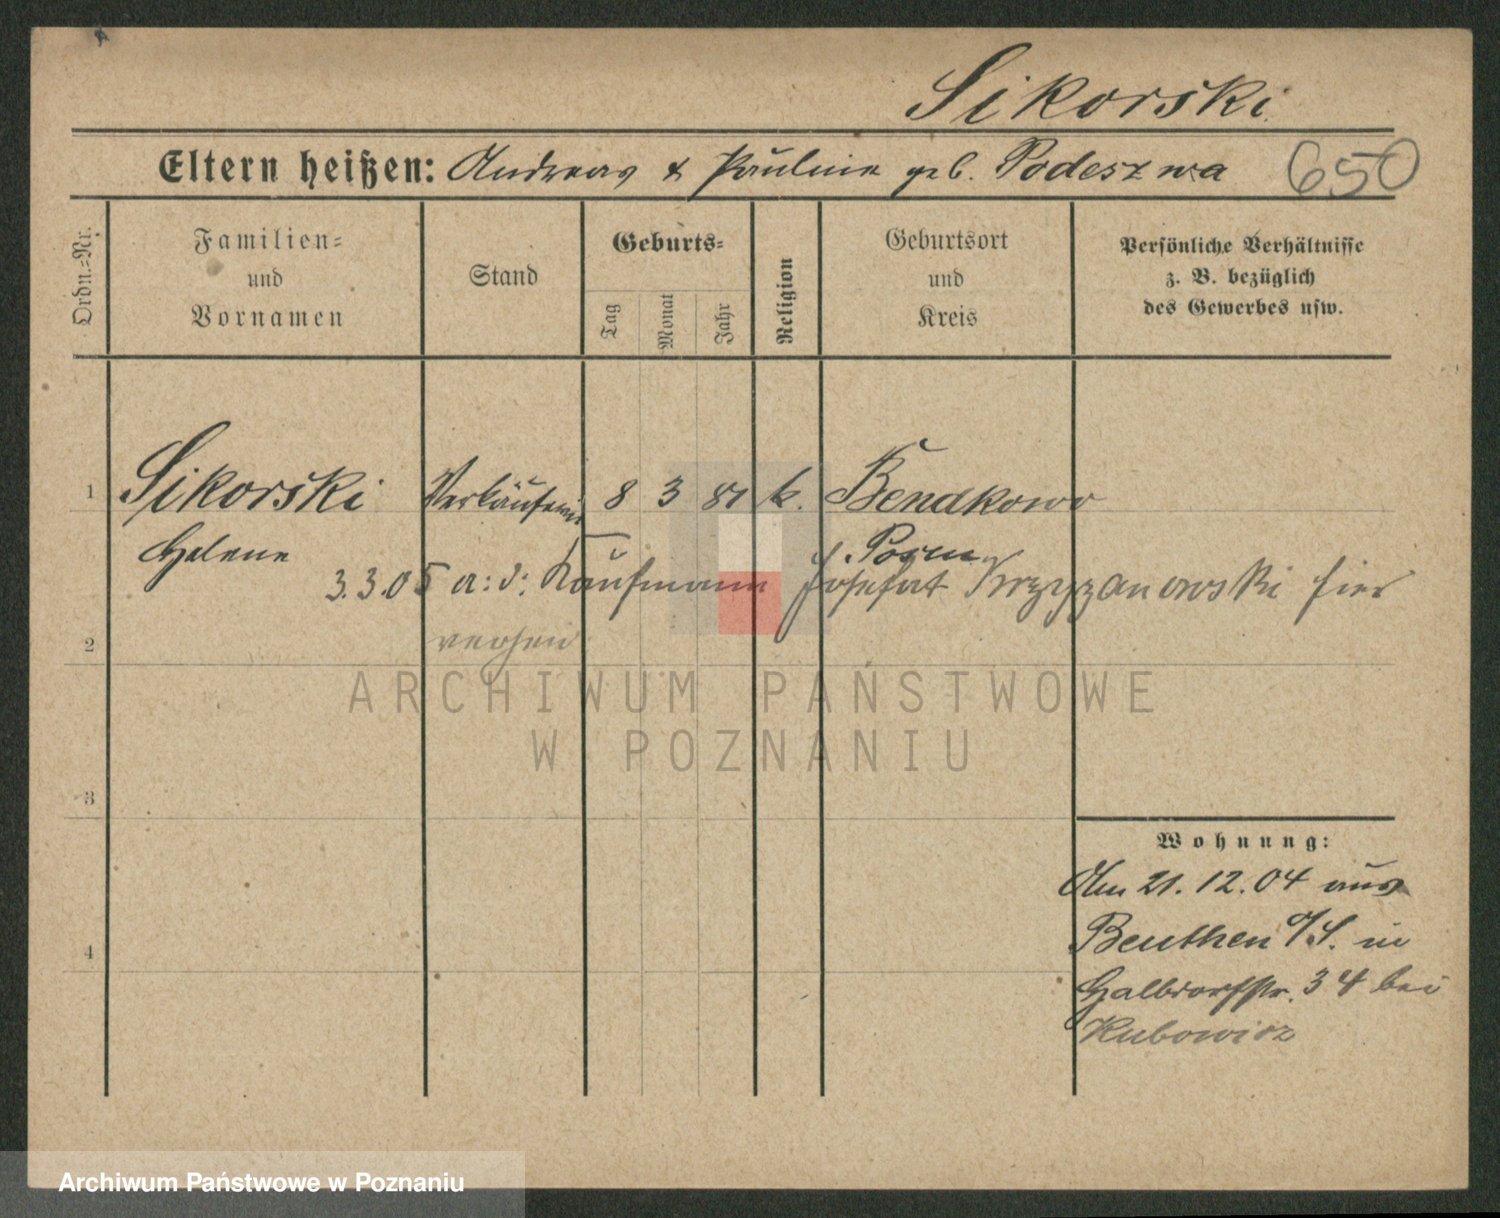 Sikorski
Eltern heißen: Andreas & Pauline geb. Podeszwa
650
Ordn.=Nr.
Familien=
und
Vornamen
Stand
Geburts=
Tag
Monat
Jahr
Religion
Geburtsort
und
Kreis
Persönliche Verhältnisse
z. B. bezüglich
des Gewerbes usw.
1 Sikorski Verkäuferin 8 3 81 k. Bendkowo
Helene Posen
3.3.05 a: d: Kaufmann Josefat Krzyzanowski hier
2
3
4
Wohnung:
Am 21. 12. 04 aus
Beuthen O/S. in
Halbdorfstr. 34 bei
Kubowicz
ARCHIWUM PAŃSTWOWE
W POZNANIU
Archiwum Państwowe w Poznaniu